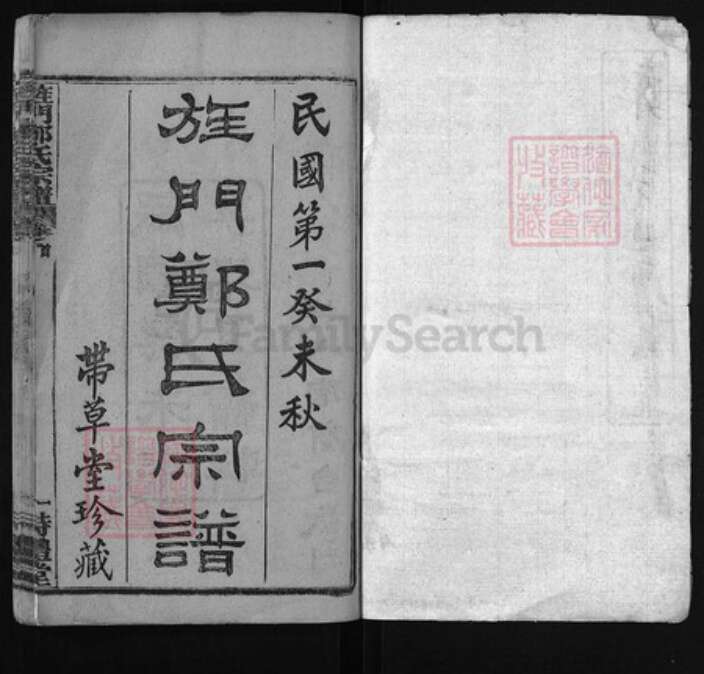 民國第一癸未秋
旌門鄭氏宗譜
帶草堂珍藏
旌門鄭氏宗譜
FamilySearch